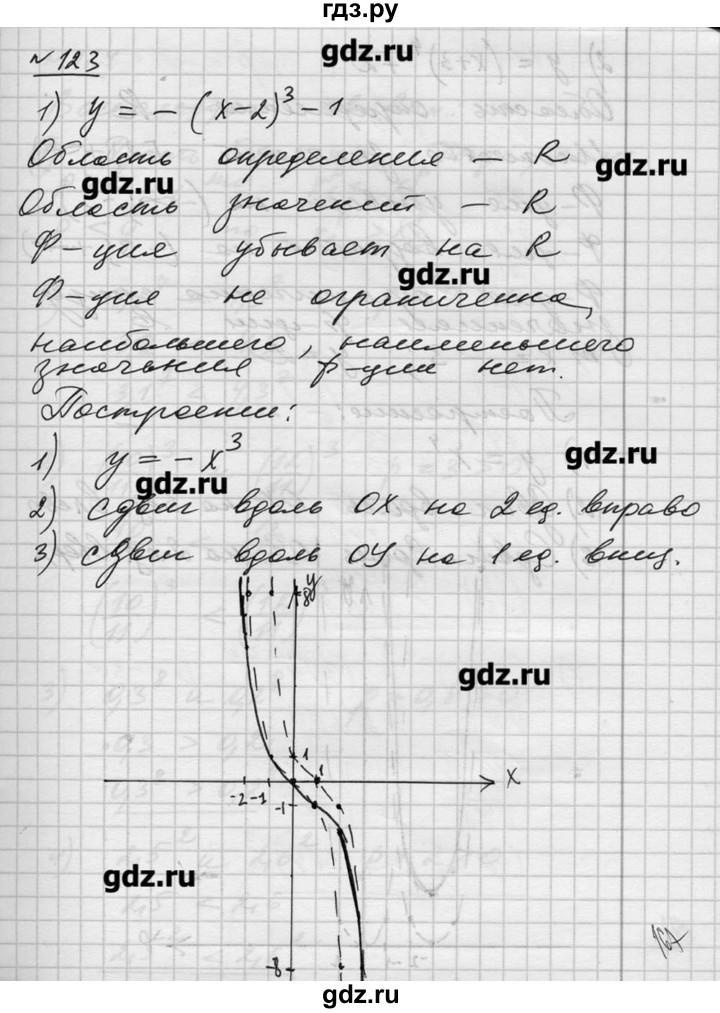 гдз.ру
gdz.ru
№ 123
1) y = - (x-2)³ - 1
Область определения – R
gdz.ru
gdz.ru
Область значений – R
Ф-ция убывает на R
gdz.ru
Ф-ция не ограниченна,
наибольшего, наименьшего
значения ф-ции нет.
Построении:
1) y = - x³
gdz.ru
gdz.ru
2) Сдвиг вдоль OX на 2 ед. вправо
3) сдвиг вдоль OY на 1 ед. вниз.
y
8
gdz.ru
1
1
x
-2 -1
-1
gdz.ru
-8
167
gdz.ru